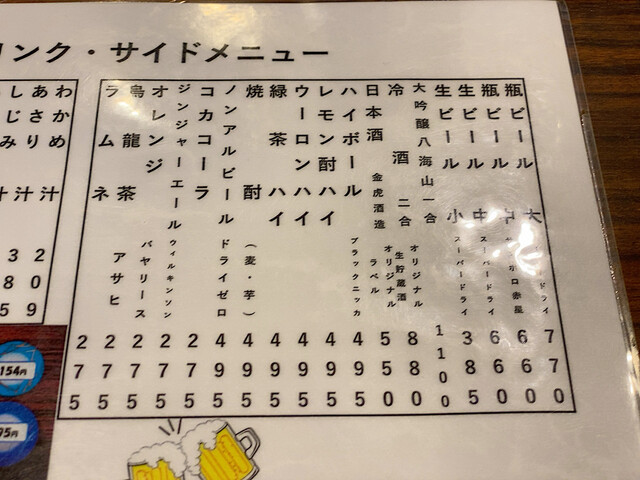 リンク・サイドメニュー
瓶ビール 大 ドライ 770
瓶ビール 中 ポロ赤星 660
生ビール 中 スーパードライ 660
生ビール 小 スーパードライ 385
大吟醸八海山一合 オリジナル 1100
冷酒 二合 生貯蔵酒 オリジナル 880
日本酒 金虎酒造 ラベル 550
ハイボール ブラックニッカ 495
レモン酎ハイ 495
ウーロンハイ 495
緑茶ハイ 495
焼酎 (麦・芋) 495
ノンアルビール ドライゼロ 495
コカコーラ 275
ジンジャーエール ウィルキンソン 275
オレンジ バヤリース 275
烏龍茶 アサヒ 275
ラムネ 275
わかめ汁 209
あさり汁 385
しじみ汁
154円
95円